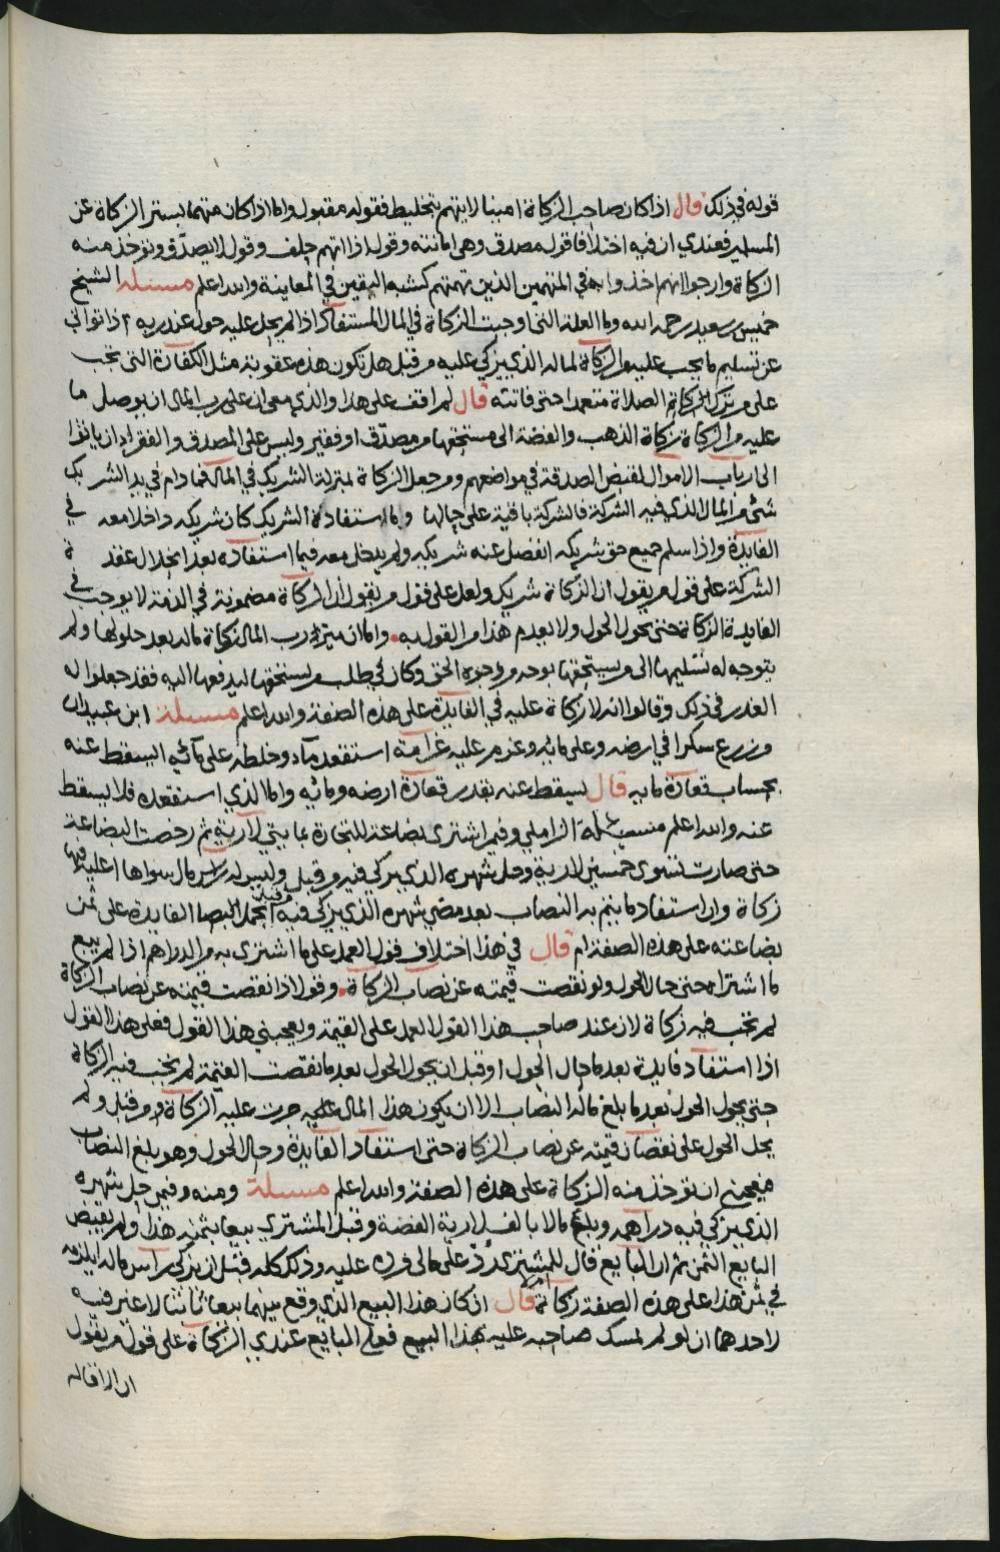 قوله في ذلك قال اذا كان صاحب الزكاة امينا لا يتهم بتخليط فقوله مقبول واما اذا كان متهما بستر الزكاة عن
المسلمين فعندي ان فيه اختلافا قول مصدق وهي امانته وقول اذا اتهم حلف وقول لا يصدق وتوخذ منه
الزكاة وارجوا انهم اخذوا به في المتهمين الذين تهمتهم كشبه اليقين في المعاينة والله اعلم مسئلة الشيخ
خميس بن سعيد رحمه الله وما العلة التي اوجبت الزكاة في المال المستفاد اذا لم يحل عليه حول عند ربه اذا توانى
عن تسليم ما يجب عليه من الزكاة لماله الذي يزكي عليه من قبل هل تكون هذه عقوبة مثل الكفارة التي تجب
على من ترك الصلاة متعمدا حتى فاتته قال لم اقف على هذا والذي معي ان على رب المال ان يوصل ما
عليه من الزكاة زكاة الذهب والفضة الى مستحقها من مصدق او فقير وليس على المصدق والفقراء ان ياتوا
الى ارباب الاموال لقبض الصدقة في مواضعهم ومن جعل الزكاة بمنزلة الشريك في المال فما دام في يد الشريك
شئ من المال الذي فيه الشركة فالشركة باقية على حالها وما استفاده الشريك كان شريكه داخلا معه في
الفايدة واذا سلم جميع حق شريكه انفصل عنه شريكه ولم يدخل معه فيما استفاده بعد انحلال عقدة
الشركة على قول من يقول ان الزكاة شريك ولعل على قول من يقول ان الزكاة مضمونة في الذمة لا يوجب في
الفايدة الزكاة حتى يحول الحول ولا يعدم هذا من القول به واما ان ميز رب المال زكاة ماله بعد حلولها ولم
يتوجه له تسليمها الى من يستحقها بوجه من وجوه الحق وكان في طلب من يستحقها ليدفعها اليه فقد جعلوا له
العذر في ذلك وقالوا انه لا زكاة عليه في الفايدة على هذه الصفة والله اعلم مسئلة ابن عبيدان
ومن زرع سكرا في ارضه وعلى مائه وغرم عليه غرامة استقعد ماء وخلطه على مائه ايسقط عنه
بحساب قعادة مايه قال يسقط عنه بقدر قعادة ارضه ومائه واما الذي استقعده فلا يسقط
عنه والله اعلم مسئلة الزاملي وفيمن اشترى بضاعة للتجارة بمايتي لارية ثم رخصت البضاعة
حتى صارت تسوى خمسين لارية وحل شهره الذي يزكي فيه من قبل وليس له راس مال سواها اعليه فيها
زكاة وان استفاد ما يتم به النصاب بعد مضي شهره الذي يزكي فيه من قبل ايحمل الفايدة على ثمن
بضاعته على هذه الصفة ام قال في هذا اختلاف قول العمل على ما اشترى به من الدراهم اذا لم يبع
ما اشتراه حتى حال الحول ولو نقصت قيمته عن نصاب الزكاة وقول اذا نقصت قيمته عن نصاب الزكاة
لم تجب فيه زكاة لان عند صاحب هذا القول العمل على القيمة ويعجبني هذا القول فعلى هذا القول
اذا استفاد فايدة بعد ما حال الحول او قبل ان يحول الحول بعد ما نقصت القيمة لم تجب فيه الزكاة
حتى يحول الحول بعد ما بلغ ماله النصاب الا ان يكون هذا المال جرت عليه الزكاة من قبل ولم
يحل الحول على نقصان قيمته عن نصاب الزكاة حتى استفاد الفايدة وحال الحول وهو بلغ النصاب
فيعجبني ان توخذ منه الزكاة على هذه الصفة والله اعلم مسئلة ومنه وفيمن حل شهره
الذي يزكي فيه دراهمه وبلغ مالا بالف لارية الفضة وقبل المشتري بيعا بثمنه هذا ولم يقبض
البايع الثمن ثم ان البايع قال للمشتري رد علي مالي فرده عليه وذلك كله قبل ان يزكي راس ماله ايلزمه
في ثمن هذا على هذه الصفة زكاة ام لا قال ان كان هذا البيع الذي وقع بينهما بيعا ثابتا لا غير فيه
لاحدهما ان لو لم يمسك صاحبه عليه بهذا البيع فعلى البايع عندي الزكاة على قول من يقول
ان الاقالة